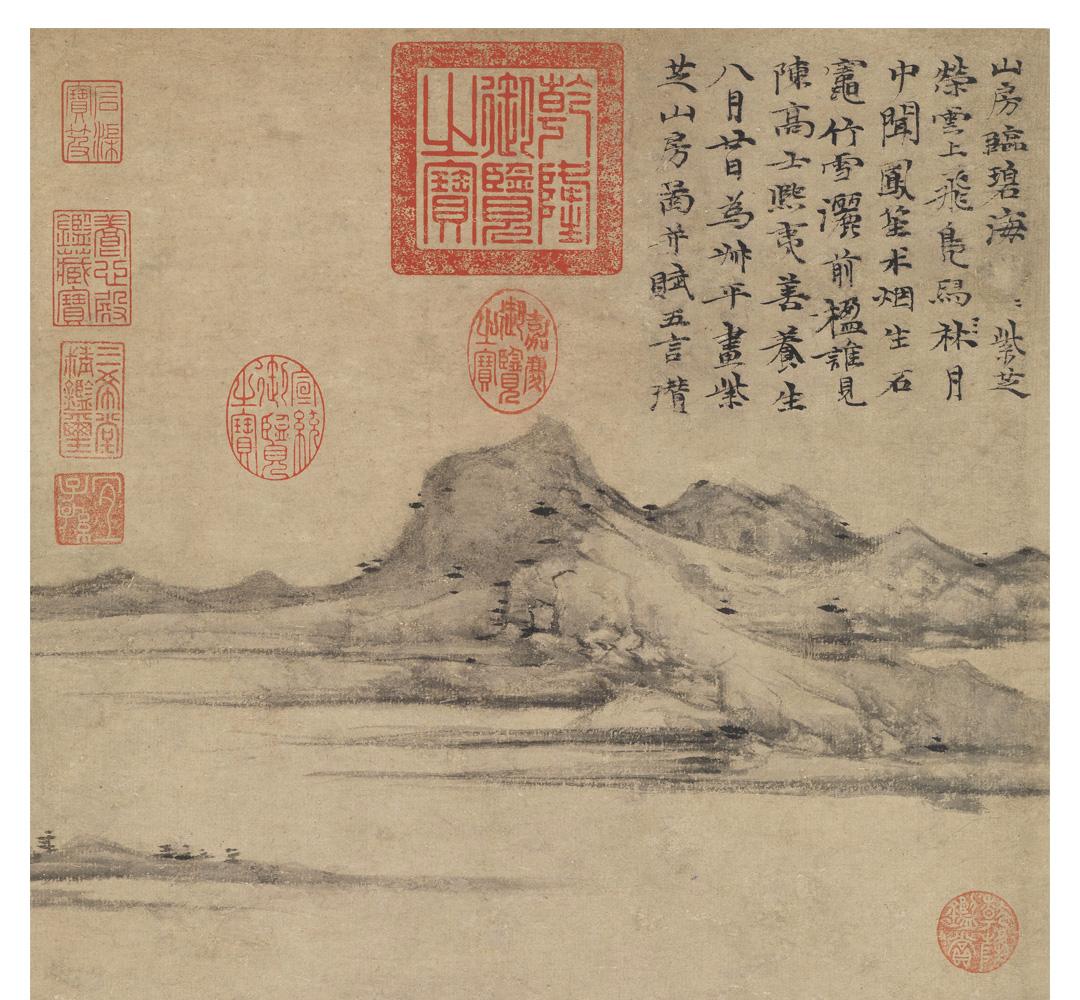 山房臨碧海〻紫芝
榮雲上飛鳧舄林月
中聞鳳笙朮烟生石
竈竹雪灑前楹誰見
陳高士熙夷善養生
八月廿日為平畫紫
芝山房圖并賦五言瓚
乾隆御覽之寶
嘉慶御覽之寶
宣統御覽之寶
石渠寶笈
養心殿鑑藏寶
三希堂精鑑璽
宜子孫
乾隆鑑賞